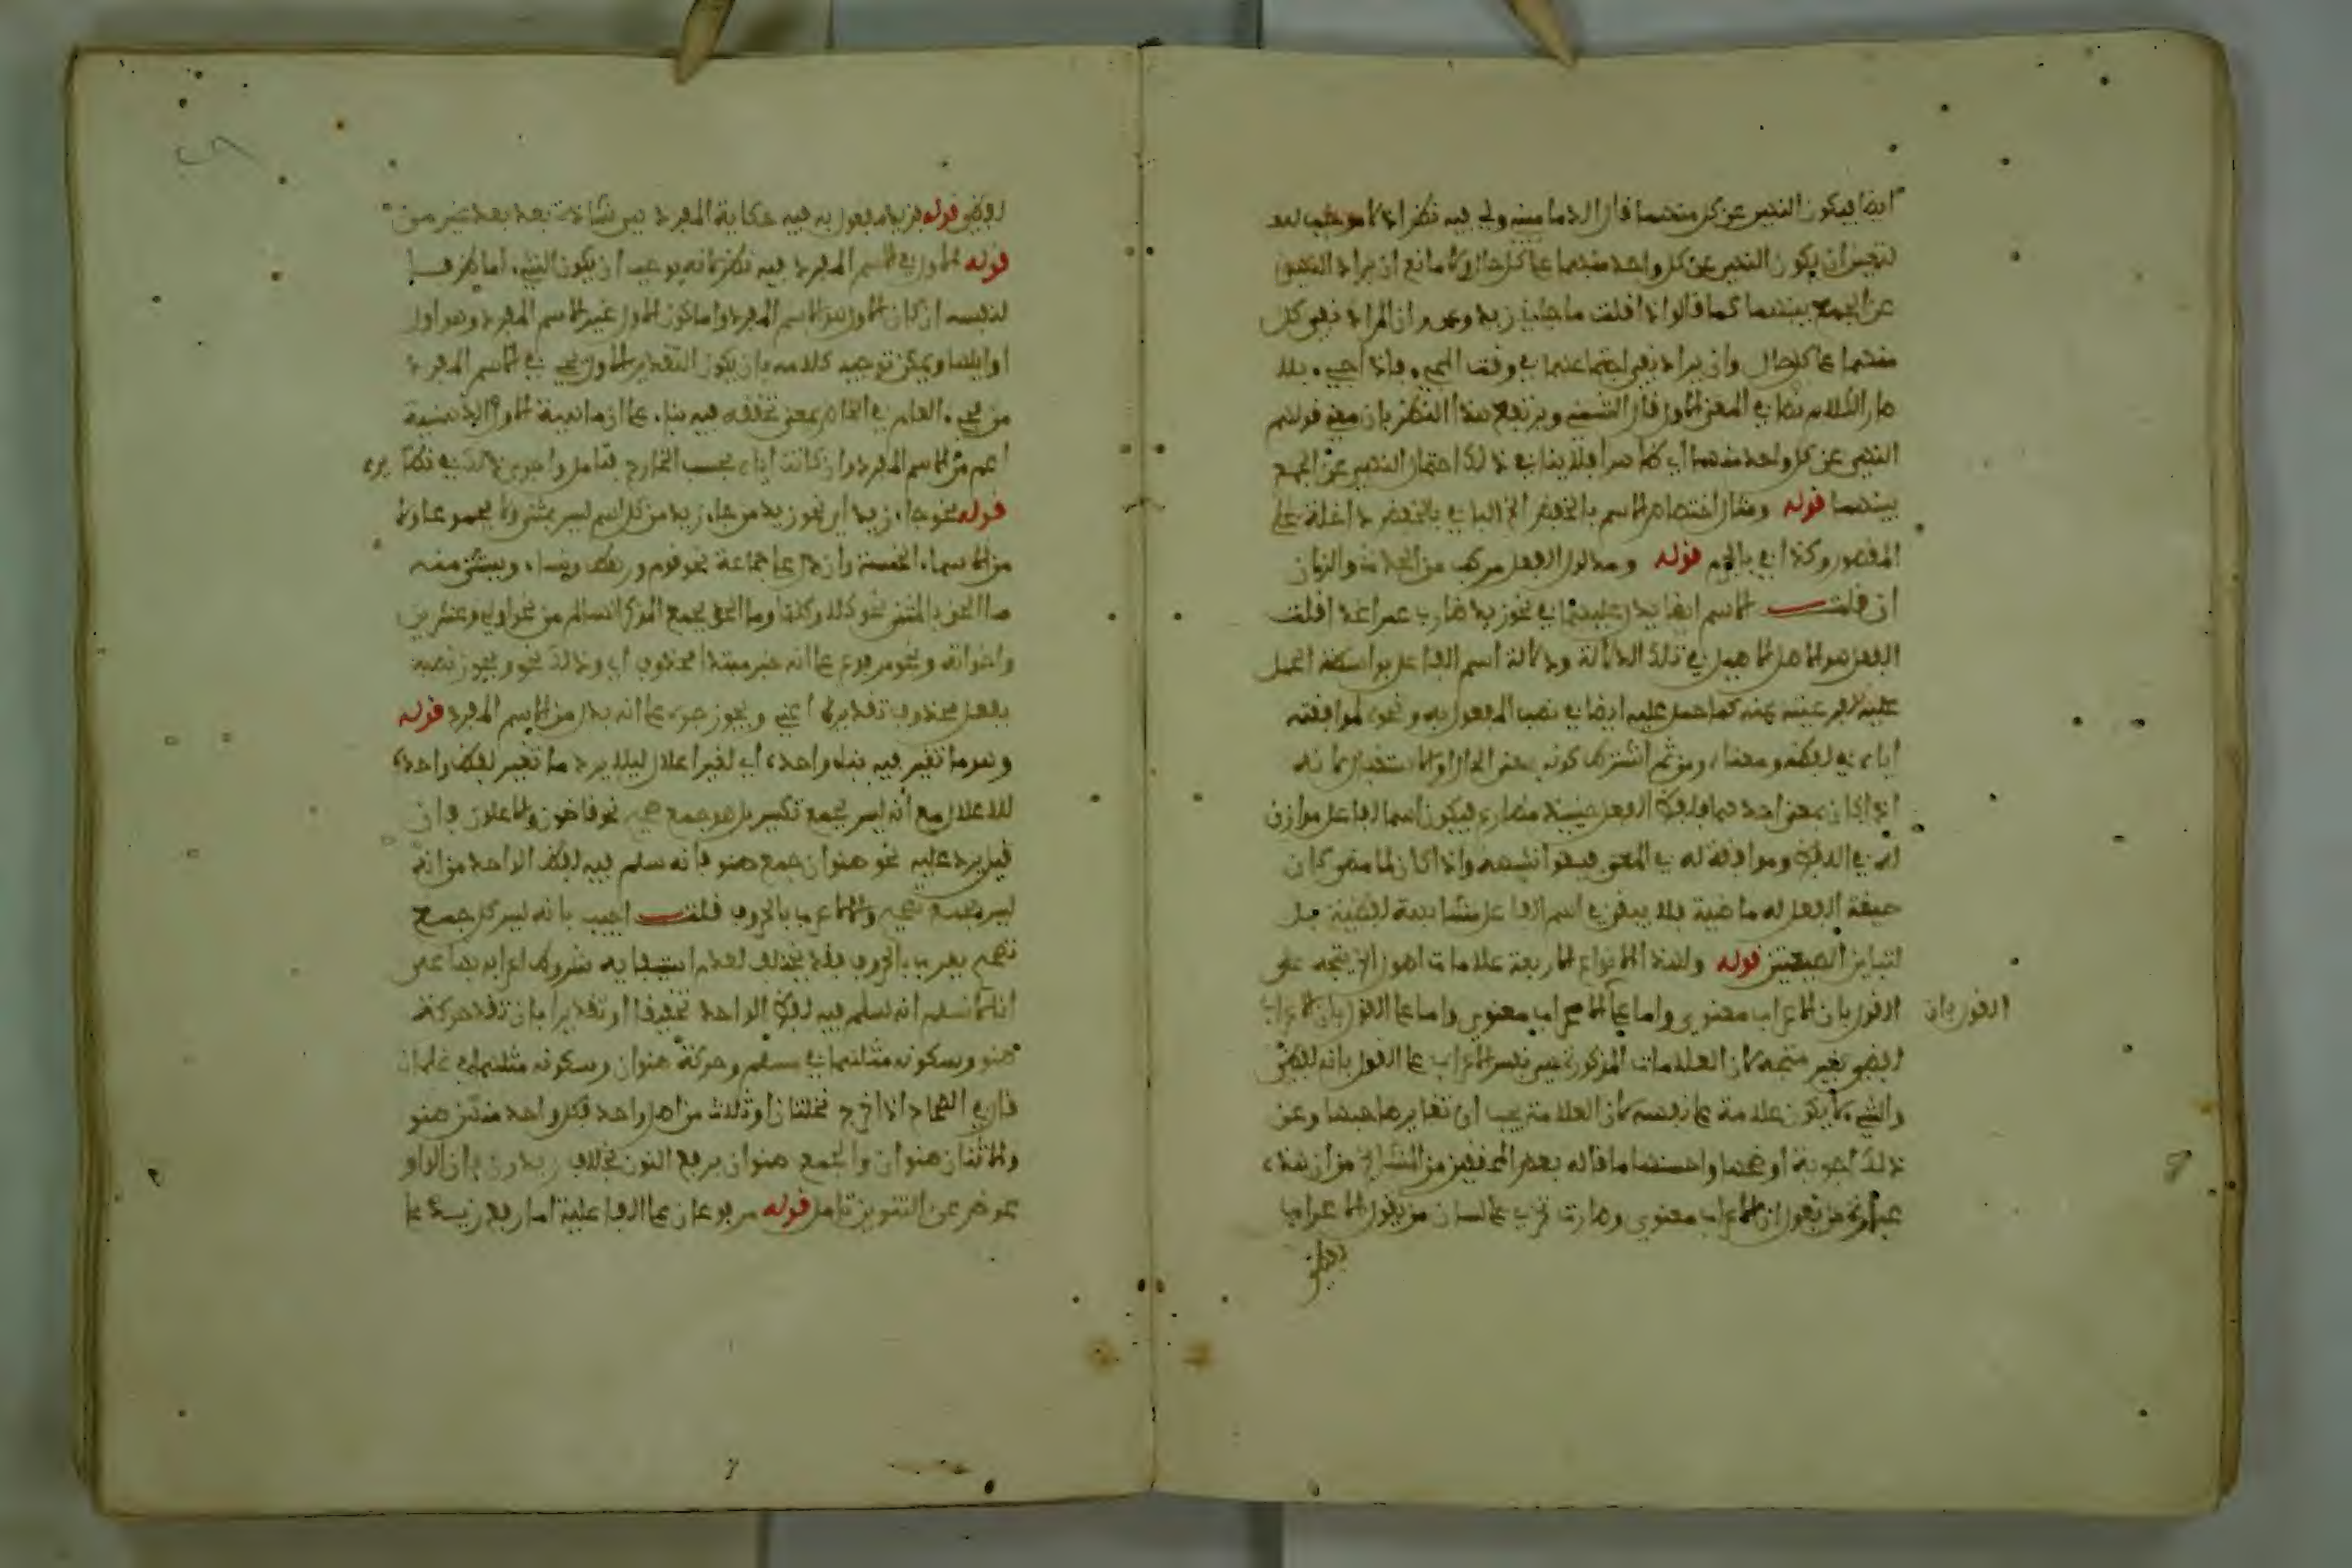 ايضا فيكون النهي عن كل منهما قال الدماميني ولي فيه نظر اذ لا موجب له
لتعين ان يكون النهي عن كل واحد منهما على كل حال ولا مانع ان يراد النهي
عن الجمع بينهما كما قالوا اذا قلت ما جاءني زيد وعمرو ان المراد نفي كل
منهما على كل حال وان يراد نفي اجتماعهما في وقت المجيء فاذا جيء بلا
صار الكلام نصا في المعنى الاول قال الشمني ويرتفع هذا النظر بان معنى قولهم
النهي عن كل واحد منهما اي ظاهرا فلا ينافي ذلك احتمال النهي عن الجمع
بينهما قوله ومثال اختصاص الاسم بالخفض الخ الباء في بالخفض داخلة على
المقصور وكذا في بالجزم قوله ومدلول الفعل مركب من الحدث والزمان
ان قلت الاسم ايضا يدل عليهما في نحو زيد ضارب عمرا غدا قلت
الفعل هو الاصل الاصيل في تلك الدلالة ودلالة اسم الفاعل بواسطة الحمل
عليه كما حمل عليه ايضا في نصب المفعول به ونحوه لموافقته
اياه في لفظه ومعناه ومن ثم اشترط كونه بمعنى الحال او الاستقبال لانه
اذا كان بمعنى احدهما فلفظ الفعل حينئذ مضارع فيكون اسم الفاعل موازن
له في اللفظ وموافقة له في المعنى فيقوا شبهه واذا كان لما مضى كان
صيغة الفعل له ماضية فلا يبقى في اسم الفاعل مشابهة لفظية بل
لتباين الصيغتين قوله ولهذه الانواع الاربعة علامات اصول الخ يتجه على
القول بان الاعراب معنوي واما على القول بان الاعراب
القول بان
لفظي بغير متجه لان العلامات المذكورة هي نفس الاعراب على القول بانه لفظي
والشيء لا يكون علامة على نفسه لان العلامة يجب ان تغاير صاحبها وعن
ذلك اجوبة اوضحها واحسنها ما قاله بعض المحققين من الشراح من ان هذه
عبارة من يقول ان الاعراب معنوي وصارت تجري على لسان من يقول الاعراب
لفظي
لفظي قوله فزيد مفعول به فيه حكاية المفرد
قوله الاول في الاسم المفرد فيه نظر لانه يوجب ان يكون الشيء اما ظرفا
لنفسه ان كان الاول هو الاسم المفرد واما كون الاول غير الاسم المفرد وهو اول
اوائلها ويمكن توجيه كلامه بان يكون التقدير الاول يجيء في الاسم المفرد
من مجيء العام في الخاص بمعنى تحققه فيه بناء على ان ماهية الاول الذهنية
اعم من الاسم المفرد وان كانت اياه بحسب الخارج فتامل واجري ذلك في نظائره
قوله نحو جاء زيد اي نحو زيد من جاء زيد من كل اسم ليس بمثنى ولا مجموعا ولا
من الاسماء الخمسة وان دل على جماعة نحو قوم ورهط ونساء ويستثنى منه
ما الحق بالمثنى نحو كلا وكلتا وما الحق بجمع المذكر السالم من نحو اولي وعشرين
واخواته ونحو مرفوع على انه خبر مبتدا محذوف اي وذلك نحو ويجوز نصبه
بفعل محذوف تقديره اعني ويجوز جره على انه بدل من الاسم المفرد قوله
وهو ما تغير فيه بناء واحده اي لغير اعلال ليلا يرد ما تغير لفظ واحده
للاعلال مع انه ليس بجمع تكسير بل هو جمع صحيح نحو قاضون والاعلون فان
قيل يرد عليه نحو صنوان جمع صنو فانه سلم فيه لفظ الواحد مع انه
ليس بجمع صحيح ولا اعرب بالحروف قلت اجيب بانه ليس كل جمع
تصحيح يعرب بالحروف فقد يتخلف لعدم استيفائه شروط اعرابه بها على
انا لا نسلم انه سلم فيه لفظ الواحد تحقيقا او تقديرا بان تقدر حركة
صنو وسكونه مثلهما في مسلم وحركة صنوان وسكونه مثلهما في غلمان
قال في الصحاح اذا خرج نخلتان او ثلاث من اصل واحد فكل واحد منهن صنو
والاثنان صنوان والجمع صنوان برفع النون بخلاف زيدون فان الواو
عوض عن التنوين تامل قوله مرفوعان على الفاعلية اما رفع زيد على